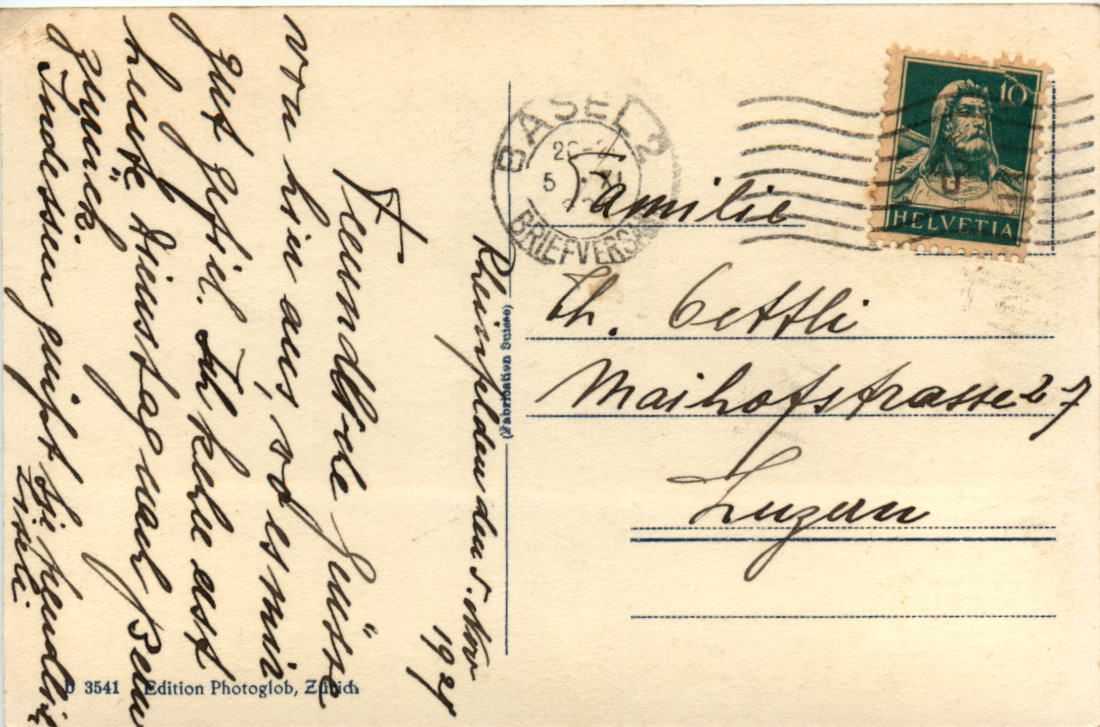 Rheinfelden den 5. Nov
1921
Freundliche Grüsse
von hier aus, wo es mir
gut gefiel. Ich kehre erst
heute Dienstag nach Bern
zurück.
Indessen grüsst Sie freundlich
BASEL 2
5 XI
BRIEFVERS
10
HELVETIA
Familie
Th. Oettli
Maihofstrasse 27
Luzern
(Fabrication Suisse)
b 3541 Edition Photoglob, Zürich